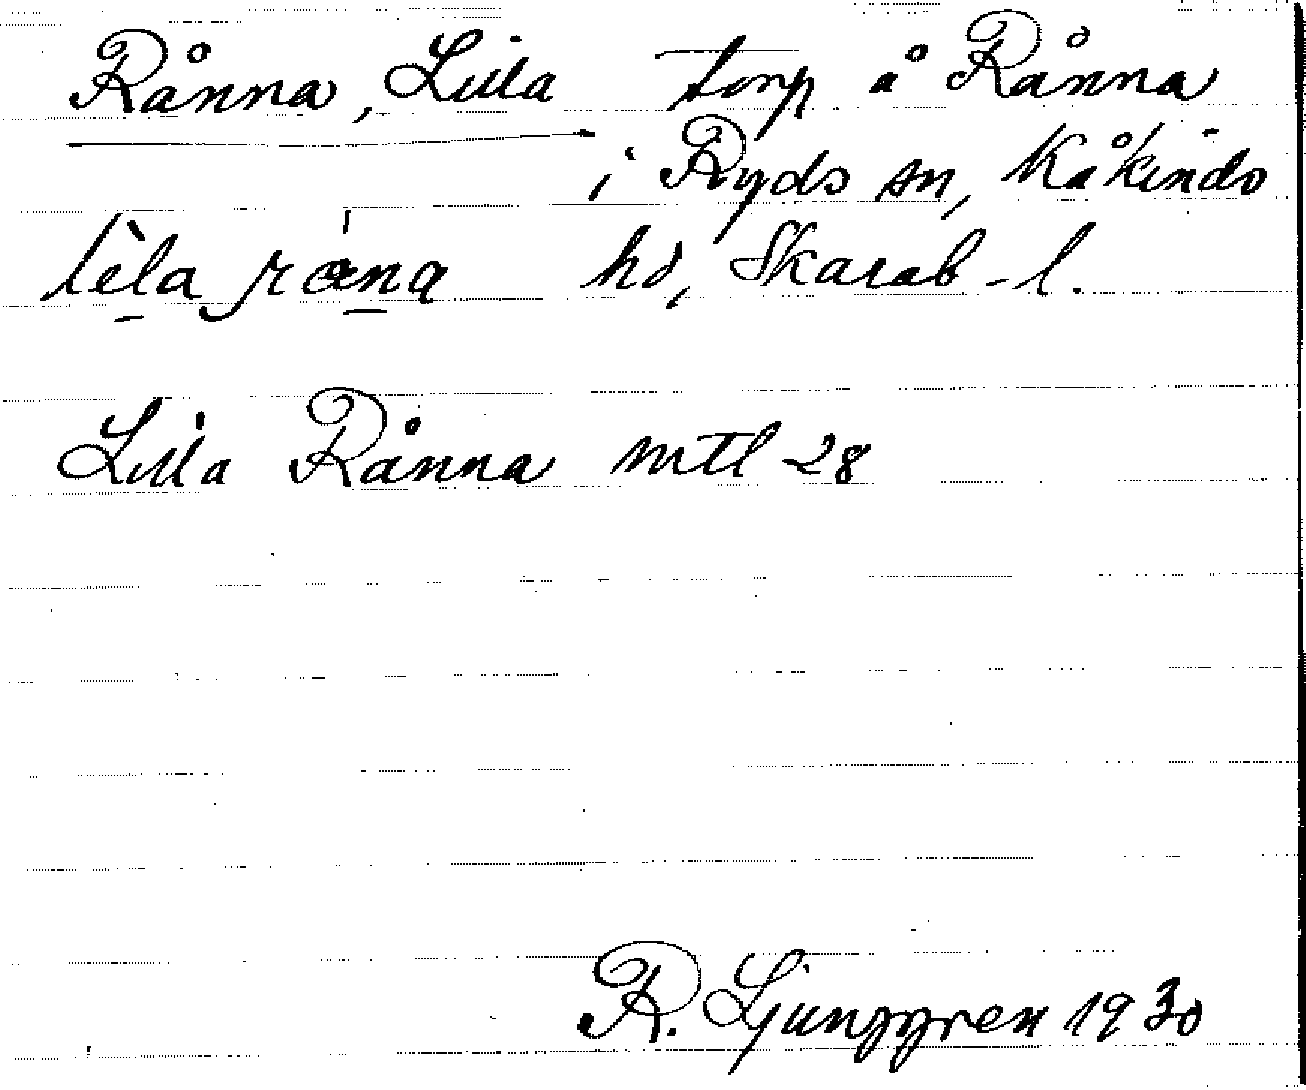 Rånna, Lilla torp å Rånna
i Ryds sn, Kåkinds
hd, Skarab-l.
Lilla Rånna mtl 28
R. Ljunggren 1930